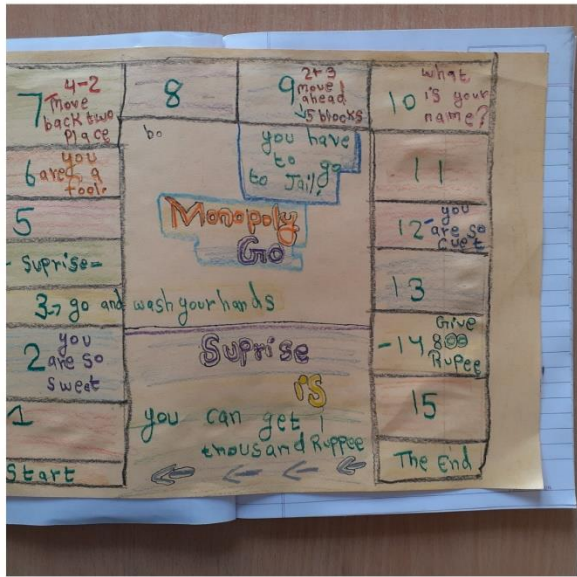 7 4-2
Move
back two
place
8
9 2+3
move
ahead
5 blocks
10 what
is your
name?
6 you
are a
fool.
bo
you have
to go
to Jail!
11
5
Monopoly
Go
12- you
are so
cuet
- Suprise -
13
3→ go and wash your hands
2 you
are so
sweet
Suprise
is
you can get 1
thousand Ruppee
-14 Give
800
Rupee
1
15
Start
The End